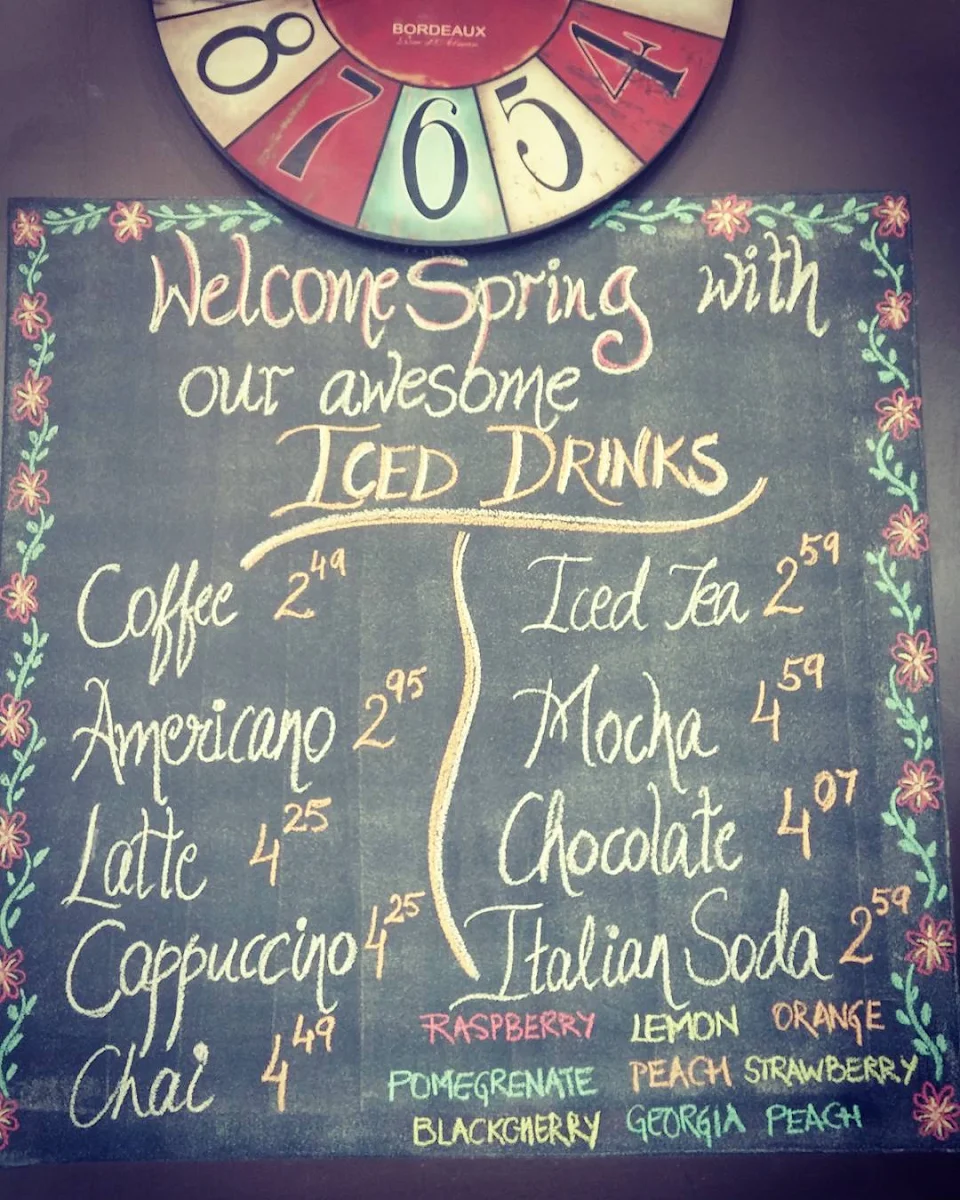 BORDEAUX
8 7 6 5 4
Welcome Spring with
our awesome
ICED DRINKS
Coffee 2 49
Americano 2 95
Latte 4 25
Cappuccino 4 25
Chai 4 49
Iced Tea 2 59
Mocha 4 59
Chocolate 4 07
Italian Soda 2 59
RASPBERRY LEMON ORANGE
POMEGRENATE PEACH STRAWBERRY
BLACKCHERRY GEORGIA PEACH